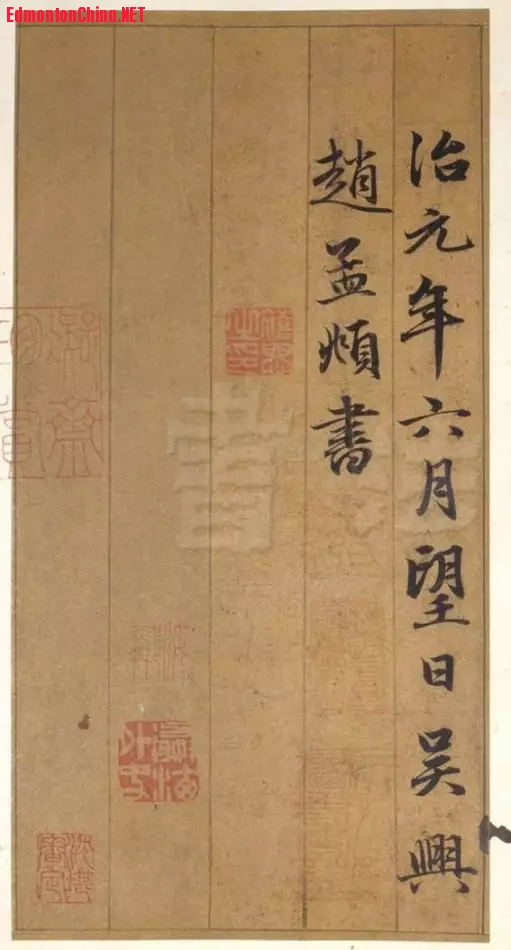 EdmontonChina.NET
治元年六月望日吴興
趙孟頫書